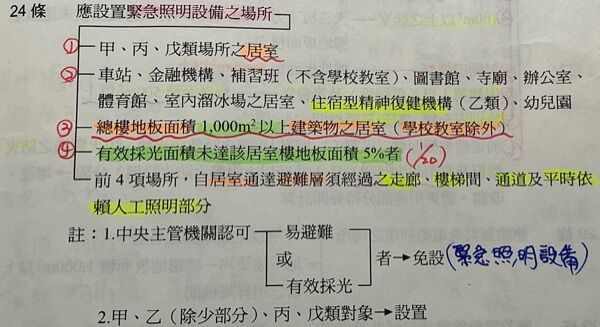 24 條 應設置緊急照明設備之場所
① 甲、丙、戊類場所之居室
② 車站、金融機構、補習班（不含學校教室）、圖書館、寺廟、辦公室、
體育館、室內溜冰場之居室、住宿型精神復健機構（乙類）、幼兒園
③ 總樓地板面積 1,000m²以上建築物之居室（學校教室除外）
④ 有效採光面積未達該居室樓地板面積 5%者 (1/20)
前 4 項場所，自居室通達避難層須經過之走廊、樓梯間、通道及平時依
賴人工照明部分
註：1.中央主管機關認可 易避難
或 者→免設(緊急照明設備)
有效採光
2.甲、乙（除少部分）、丙、戊類對象→設置